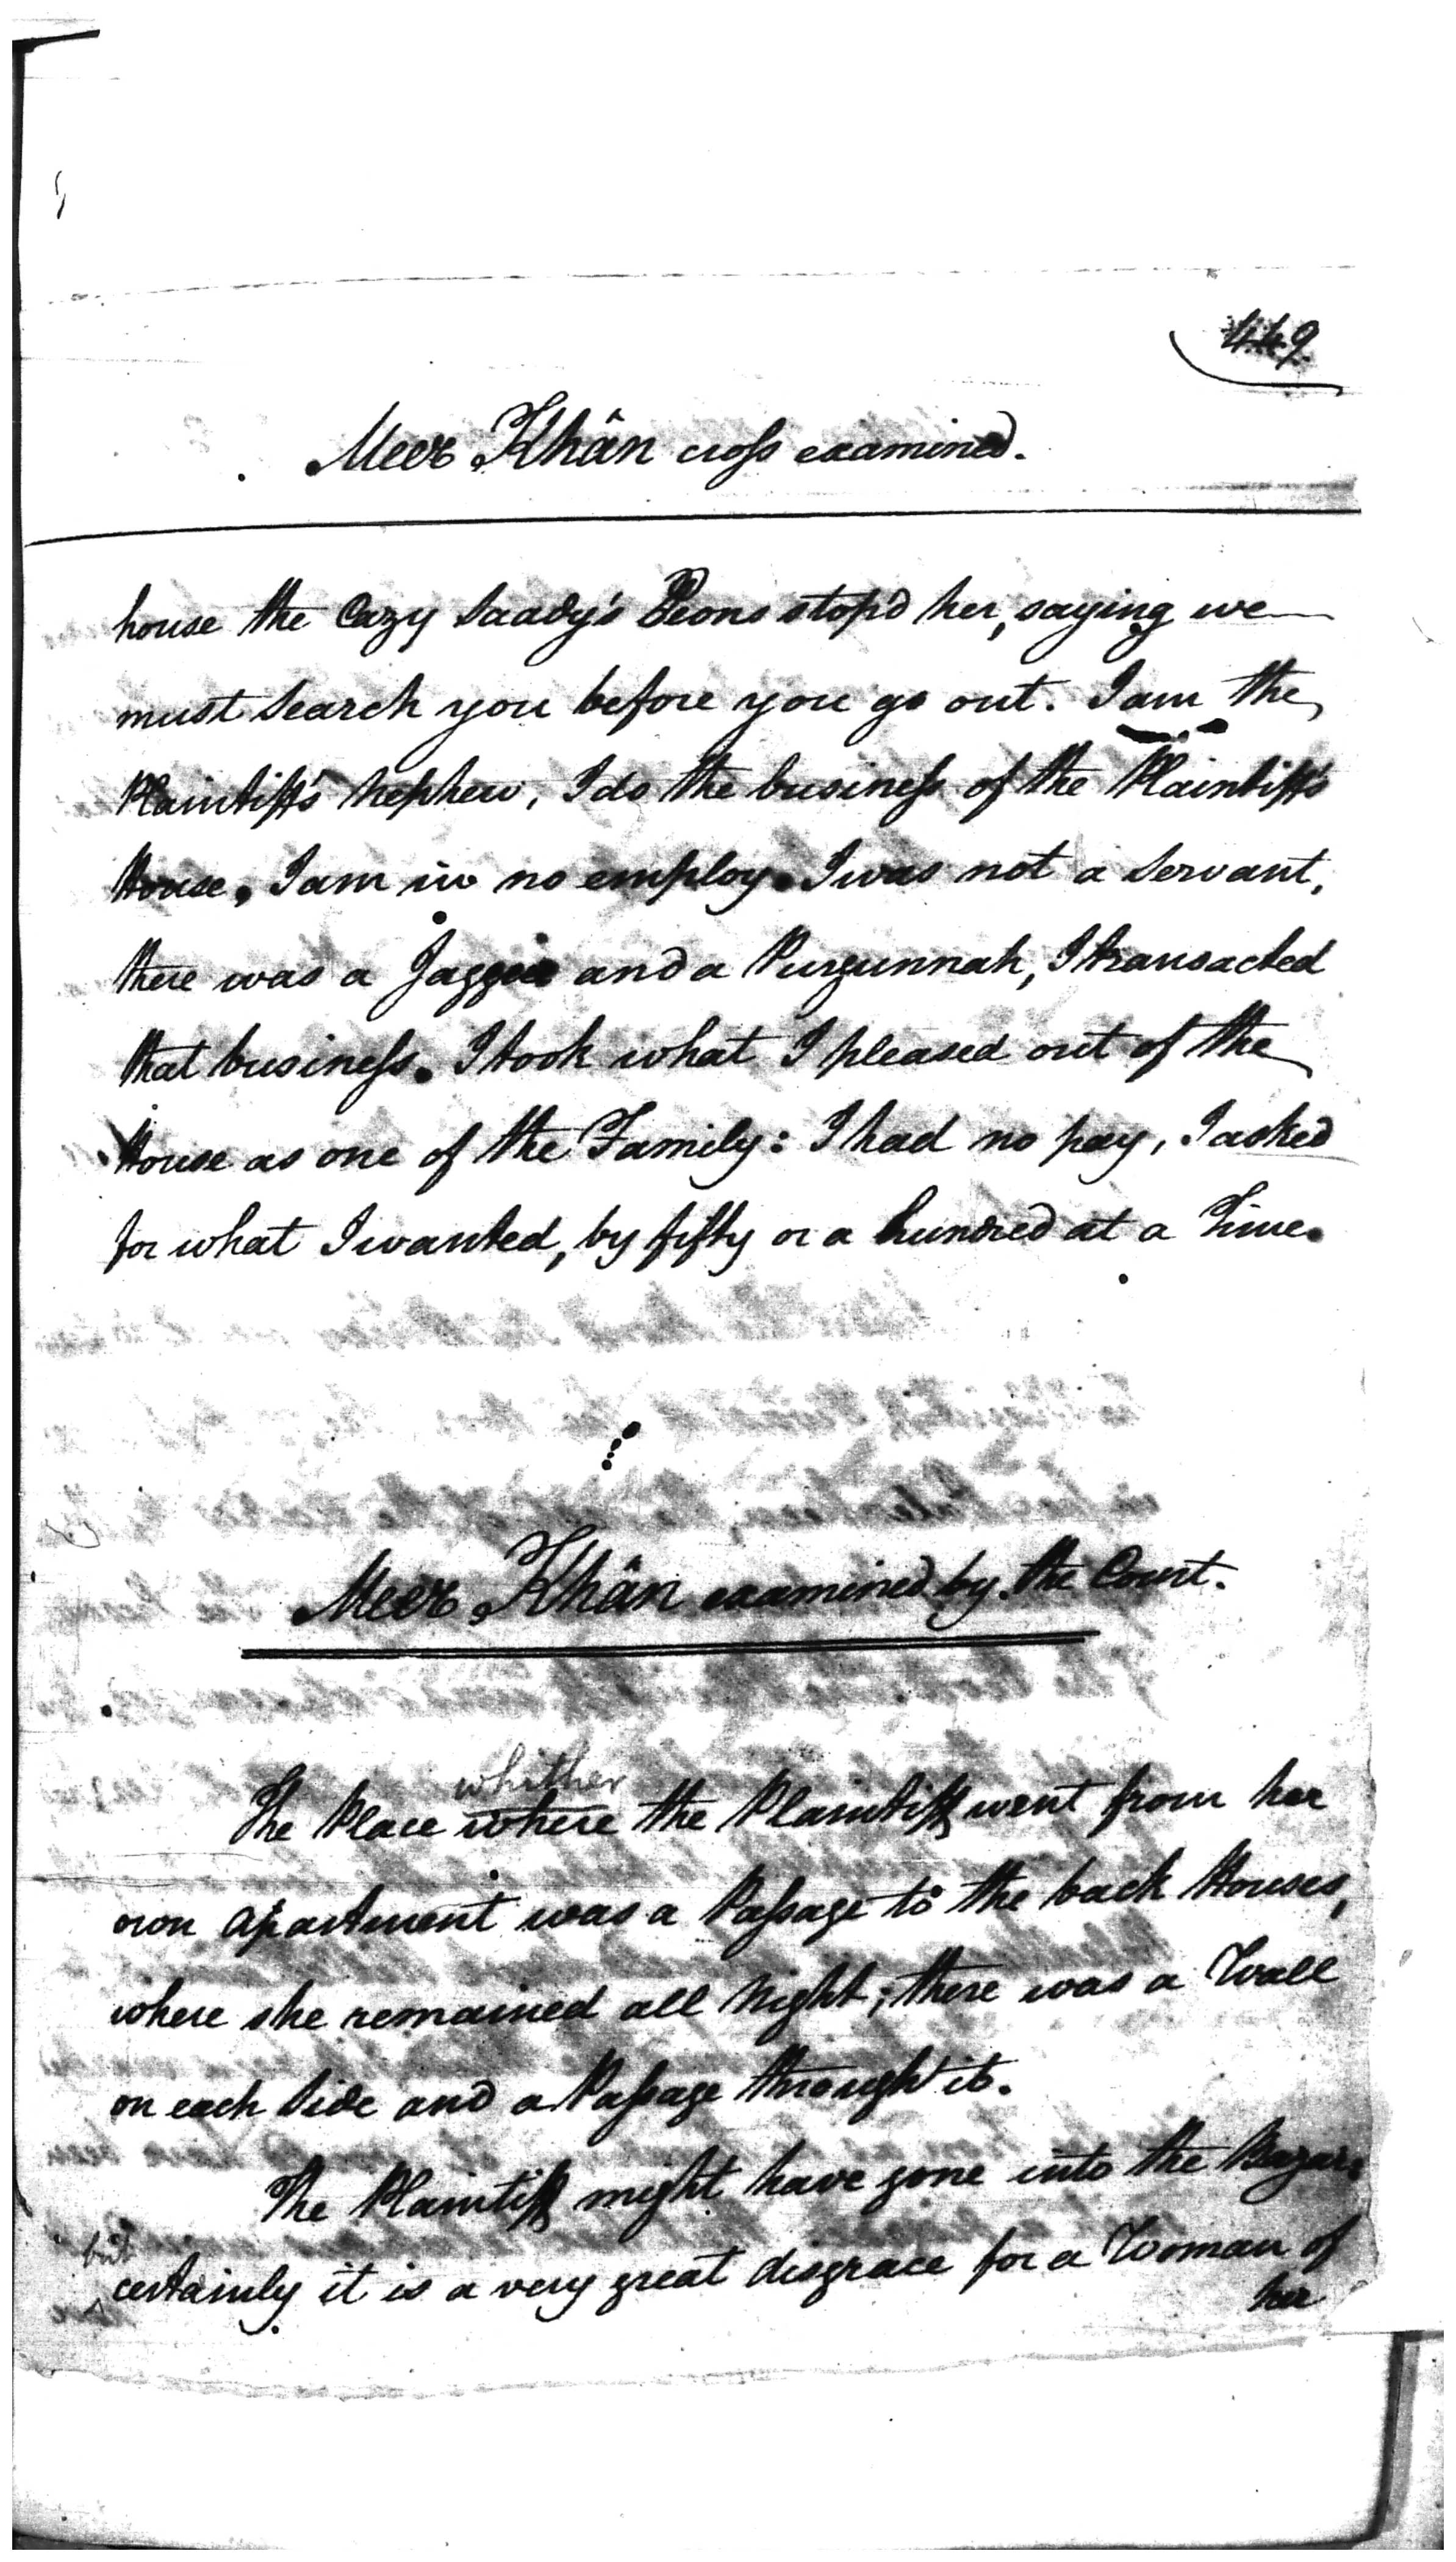 449
Meer Khân cross examined.
house the Cazy Saady's Peons stop'd her, saying we
must Search you before you go out. I am the
Plaintiff's Nephew, I do the business of the Plaintiff's
House, I am in no employ. I was not a Servant,
there was a Jaggeer and a Purgunnah, I transacted
that business. I took what I pleased out of the
House as one of the Family: I had no pay, I asked
for what I wanted, by fifty or a hundred at a Time.
Meer Khân examined by the Court.
whither
The Place where the Plaintiff went from her
own Apartment was a Passage to the back Houses,
where she remained all Night; there was a Wall
on each Side and a Passage through it.
The Plaintiff might have gone into the Bazar,
but
certainly it is a very great disgrace for a Woman of
her